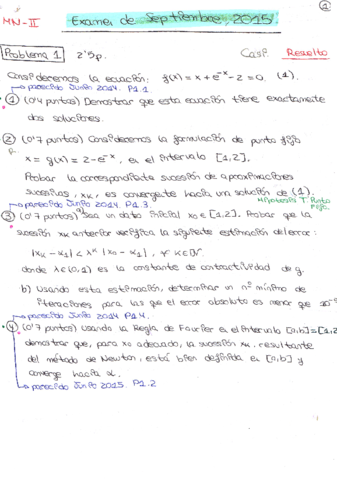 ①
MN-II Examen de Septiembre, 2015
Problema 1 2'5p. Casi Resuelto
Consideremos la ecuación: f(x) = x + e^-x - 2 = 0. (1).
↳ parecido Junio 2014. P1.1
① (0'4 puntos) Demostrar que esta ecuación tiene exactamente
dos soluciones.
② (0'7 puntos) Consideremos la formulación de punto fijo
x = g(x) = 2 - e^-x, en el intervalo [1,2].
Probar la correspondiente sucesión de aproximaciones
sucesivas, xk, es convergente hacia una solución de (1).
↳ parecido Junio 2014. P1.3. Hipótesis T. Punto Fijo.
③ (0'7 puntos) a) Sea un dato inicial x0 ∈ [1,2]. Probar que la
sucesión xk anterior verifica la siguiente estimación del error:
|xk - x1| < λ^k |x0 - x1|, ∀ k ∈ ℕ.
donde λ ∈ (0,1) es la constante de contractividad de g.
b) Usando esta estimación, determinar un nº mínimo de
iteraciones para las que el error absoluto es menor que
↳ parecido Junio 2014 P1.4.
④ (0'7 puntos) Usando la Regla de Fourier en el intervalo [a,b] = [1,2]
demostrar que, para x0 adecuado, la sucesión xk, resultante
del método de Newton, está bien definida en [a,b] y
converge hacia α.
↳ parecido Junio 2015. P1.2